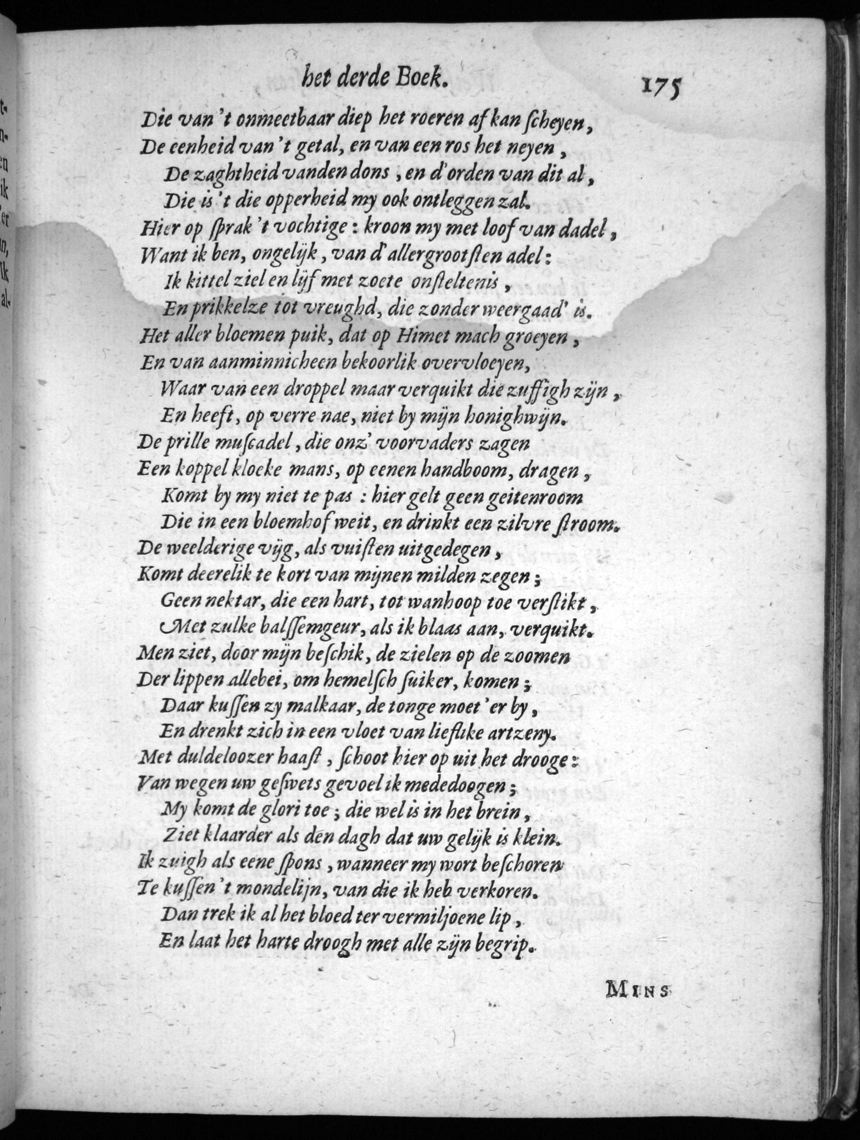 het derde Boek. 175
Die van 't onmeetbaar diep het roeren af kan ſcheyen,
De eenheid van 't getal, en van een ros het neyen,
De zaghtheid vanden dons, en d'orden van dit al,
Die is 't die opperheid my ook ontleggen zal.
Hier op ſprak 't vochtige: kroon my met loof van dadel,
Want ik ben, ongelijk, van d'allergrootſten adel:
Ik kittel ziel en lijf met zoete onſteltenis,
En prikkelze tot vreughd, die zonder weergaad' is.
Het aller bloemen puik, dat op Himet mach groeyen,
En van aanminnicheen bekoorlik overvloeyen,
Waar van een droppel maar verquikt die zuffigh zijn,
En heeft, op verre nae, niet by mijn honighwijn.
De prille muſcadel, die onz' voorvaders zagen
Een koppel kloeke mans, op eenen handboom, dragen,
Komt by my niet te pas: hier gelt geen geitenroom
Die in een bloemhof weit, en drinkt een zilvre ſtroom.
De weelderige vijg, als vuiſten uitgedegen,
Komt deerelik te kort van mijnen milden zegen;
Geen nektar, die een hart, tot wanhoop toe verſlikt,
Met zulke balſſemgeur, als ik blaas aan, verquikt.
Men ziet, door mijn beſchik, de zielen op de zoomen
Der lippen allebei, om hemelſch ſuiker, komen;
Daar kuſſen zy malkaar, de tonge moet 'er by,
En drenkt zich in een vloet van lieflike artzeny.
Met duldeloozer haaſt, ſchoot hier op uit het drooge:
Van wegen uw geſwets gevoel ik mededoogen;
My komt de glori toe; die wel is in het brein,
Ziet klaarder als den dagh dat uw gelijk is klein.
Ik zuigh als eene ſpons, wanneer my wort beſchoren
Te kuſſen 't mondelijn, van die ik heb verkoren.
Dan trek ik al het bloed ter vermiljoene lip,
En laat het harte droogh met alle zijn begrip.
MINS